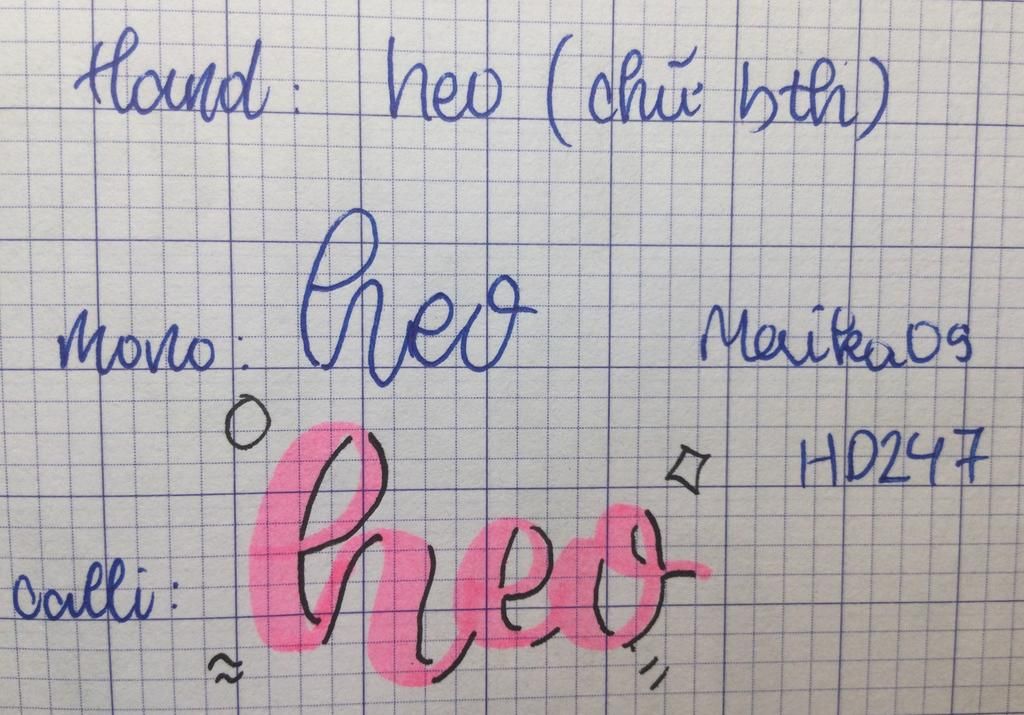 Hand: heo (chữ bth)
Mono: heo
Maika09
HD247
calli: heo